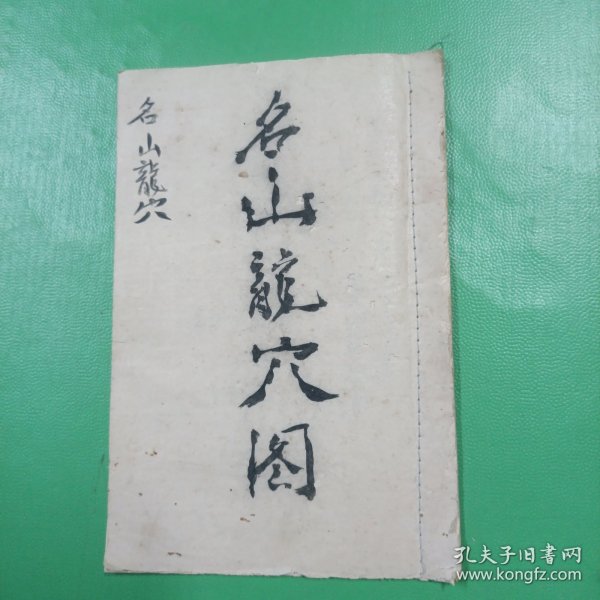 名山龍穴图
名山龍穴
孔夫子旧书网
www.kongfz.com